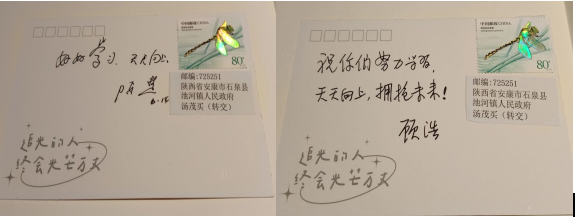 好好学习，天天向上
中国邮政 CHINA
80分
邮编:725251
陕西省安康市石泉县
池河镇人民政府
汤茂买（转交）
追光的人
终会光芒万丈
祝你们努力学习，
天天向上，拥抱未来！
顾浩
中国邮政 CHINA
80分
邮编:725251
陕西省安康市石泉县
池河镇人民政府
汤茂买（转交）
追光的人
终会光芒万丈